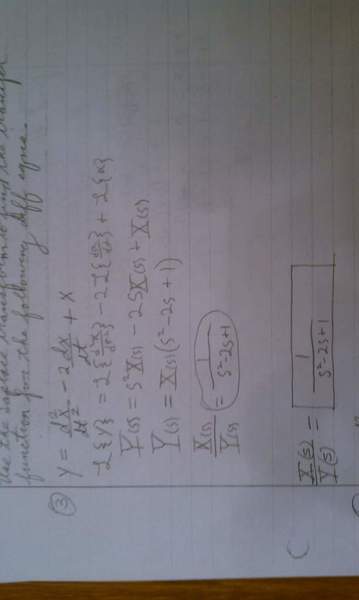 Use the Laplace transform to find the transfer
function for the following diff eqns.
③ y = d²x/dt² - 2 dx/dt + x
L{y} = L{d²x/dt²} - 2L{dx/dt} + L{x}
Y(s) = s²X(s) - 2sX(s) + X(s)
Y(s) = X(s)(s² - 2s + 1)
X(s)/Y(s) = 1/(s² - 2s + 1)
X(s)/Y(s) = 1/(s² - 2s + 1)